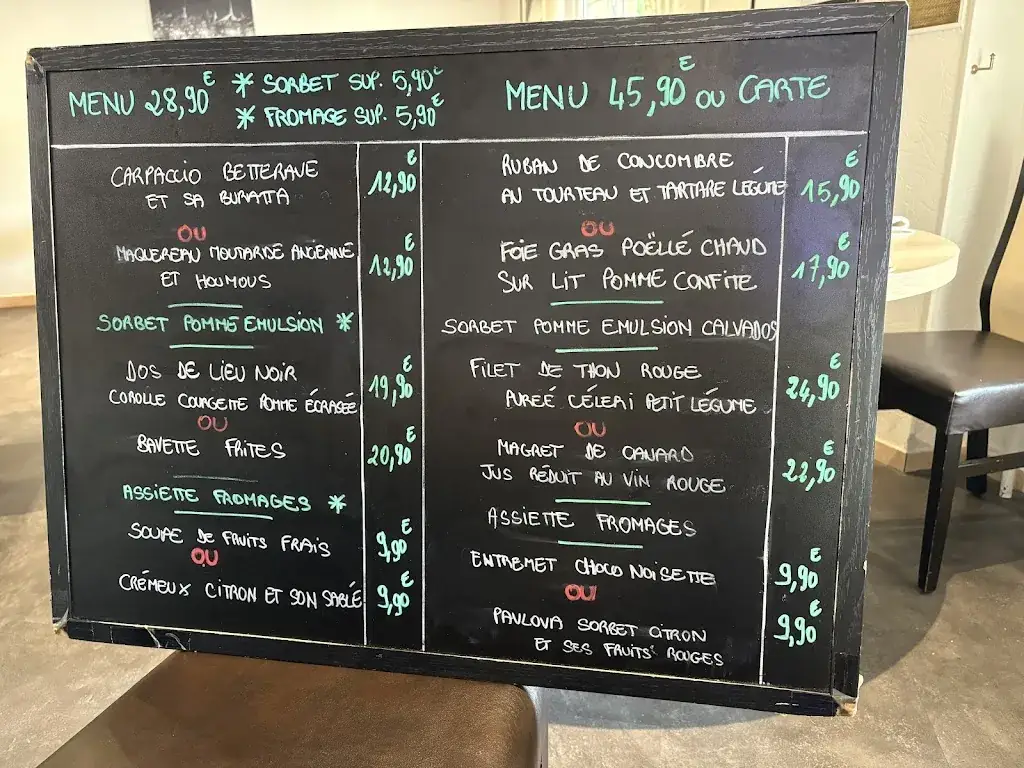 MENU 28,90€
* SORBET SUP. 5,90€
* FROMAGE SUP. 5,90€
CARPACCIO BETTERAVE
ET SA BURATTA
12,90€
OU
MAQUEREAU MOUTARDE ANCIENNE
ET HOUMOUS
12,90€
SORBET POMME EMULSION *
DOS DE LIEU NOIR
COROLLE COURGETTE POMME ÉCRASÉE
19,90€
OU
BAVETTE FRITES
20,90€
ASSIETTE FROMAGES *
SOUPE DE FRUITS FRAIS
9,90€
OU
CRÉMEUX CITRON ET SON SABLÉ
9,90€
MENU 45,90€ OU CARTE
RUBAN DE CONCOMBRE
AU TOURTEAU ET TARTARE LÉGUME
15,90€
OU
FOIE GRAS POËLLÉ CHAUD
SUR LIT POMME CONFITE
17,90€
SORBET POMME EMULSION CALVADOS
FILET DE THON ROUGE
PUREÉ CÉLERI PETIT LÉGUME
24,90€
OU
MAGRET DE CANARD
JUS RÉDUIT AU VIN ROUGE
22,90€
ASSIETTE FROMAGES
ENTREMET CHOCO NOISETTE
9,90€
OU
PAVLOVA SORBET CITRON
ET SES FRUITS ROUGES
9,90€